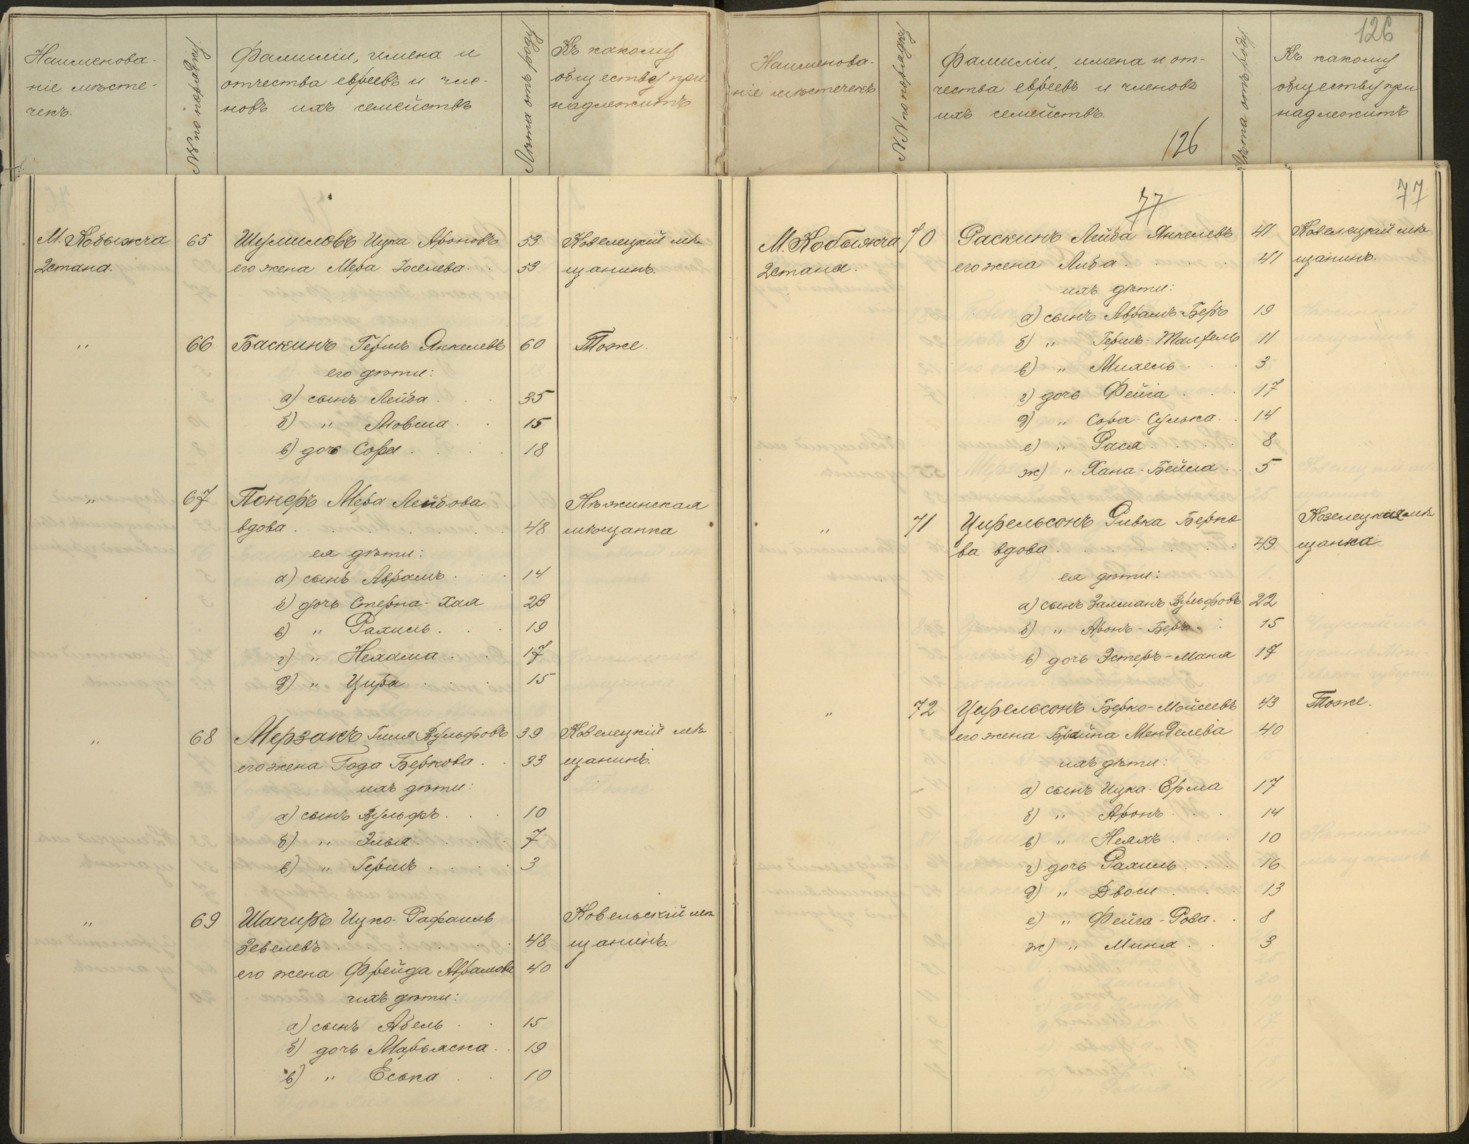 Наименова-
ніе мѣсте-
чекъ.
№№ по порядку.
Фамиліи, имена и
отчества евреевъ и чле-
новъ ихъ семействъ
Лѣта отъ роду
Къ какому
обществу при
надлежитъ
М. Кобыжча
2 стана.
65 Шулиловъ Ицка Ароновъ 53 Козелецкій мѣ-
его жена Мера Іоселева 53 щанинъ.
" 66 Баскинъ Гершъ Янкелевъ 60 Тоже.
его дѣти:
а) сынъ Лейба 35
б) " Мовша 15
в) дочь Сора 18
" 67 Пондръ Мера Лейбова Нѣжинская
вдова 48 мѣщанка
ея дѣти:
а) сынъ Абрамъ 14
б) дочь Стерна-Хая 23
в) " Рахиль 19
г) " Нехама 17
д) " Цира 15
" 68 Мерзакъ Гиля Вульфовъ 39 Козелецкій мѣ-
его жена Года Беркова 33 щанинъ.
ихъ дѣти:
а) сынъ Вульфъ 10
б) " Элья 7
в) " Гершъ 3
" 69 Шапиръ Ицко-Рафаиль Ковельскій мѣ-
Зевелевъ 48 щанинъ
его жена Фрейда Абрамова 40
ихъ дѣти:
а) сынъ Абель 15
б) дочь Марьяска 19
в) " Еська 10
126
Наименова-
ніе мѣстечекъ
№№ по порядку
Фамиліи, имена и от-
чества евреевъ и членовъ
ихъ семействъ.
126
Лѣта отъ роду
Къ какому
обществу при
надлежитъ
77
77
М. Кобыжча
2 стана.
70 Раскинъ Лейба Янкелевъ 41 Козелецкій мѣ-
его жена Либа 41 щанинъ.
ихъ дѣти:
а) сынъ Абрамъ-Беръ 19
б) " Гершъ-Танхель 11
в) " Михель 3
г) дочь Фейга 17
д) " Сора Сулька 14
е) " Рася 8
ж) " Хана-Бейла 5
" 71 Цифельсонъ Ривка Берко Козелецкая мѣ-
ва вдова 49 щанка
ея дѣти:
а) сынъ Залманъ Вульфовъ 22
б) " Аронъ-Беръ 15
в) дочь Эстеръ-Маня 17
" 72 Цифельсонъ Берко-Мойсеевъ 43 Тоже.
его жена Брайна Менделева 40
ихъ дѣти:
а) сынъ Ицка-Ерма 17
б) " Аронъ 14
в) " Неяхъ 10
г) дочь Рахиль 16
д) " Двоси 13
е) " Фейга-Рова 8
ж) " Миня 3